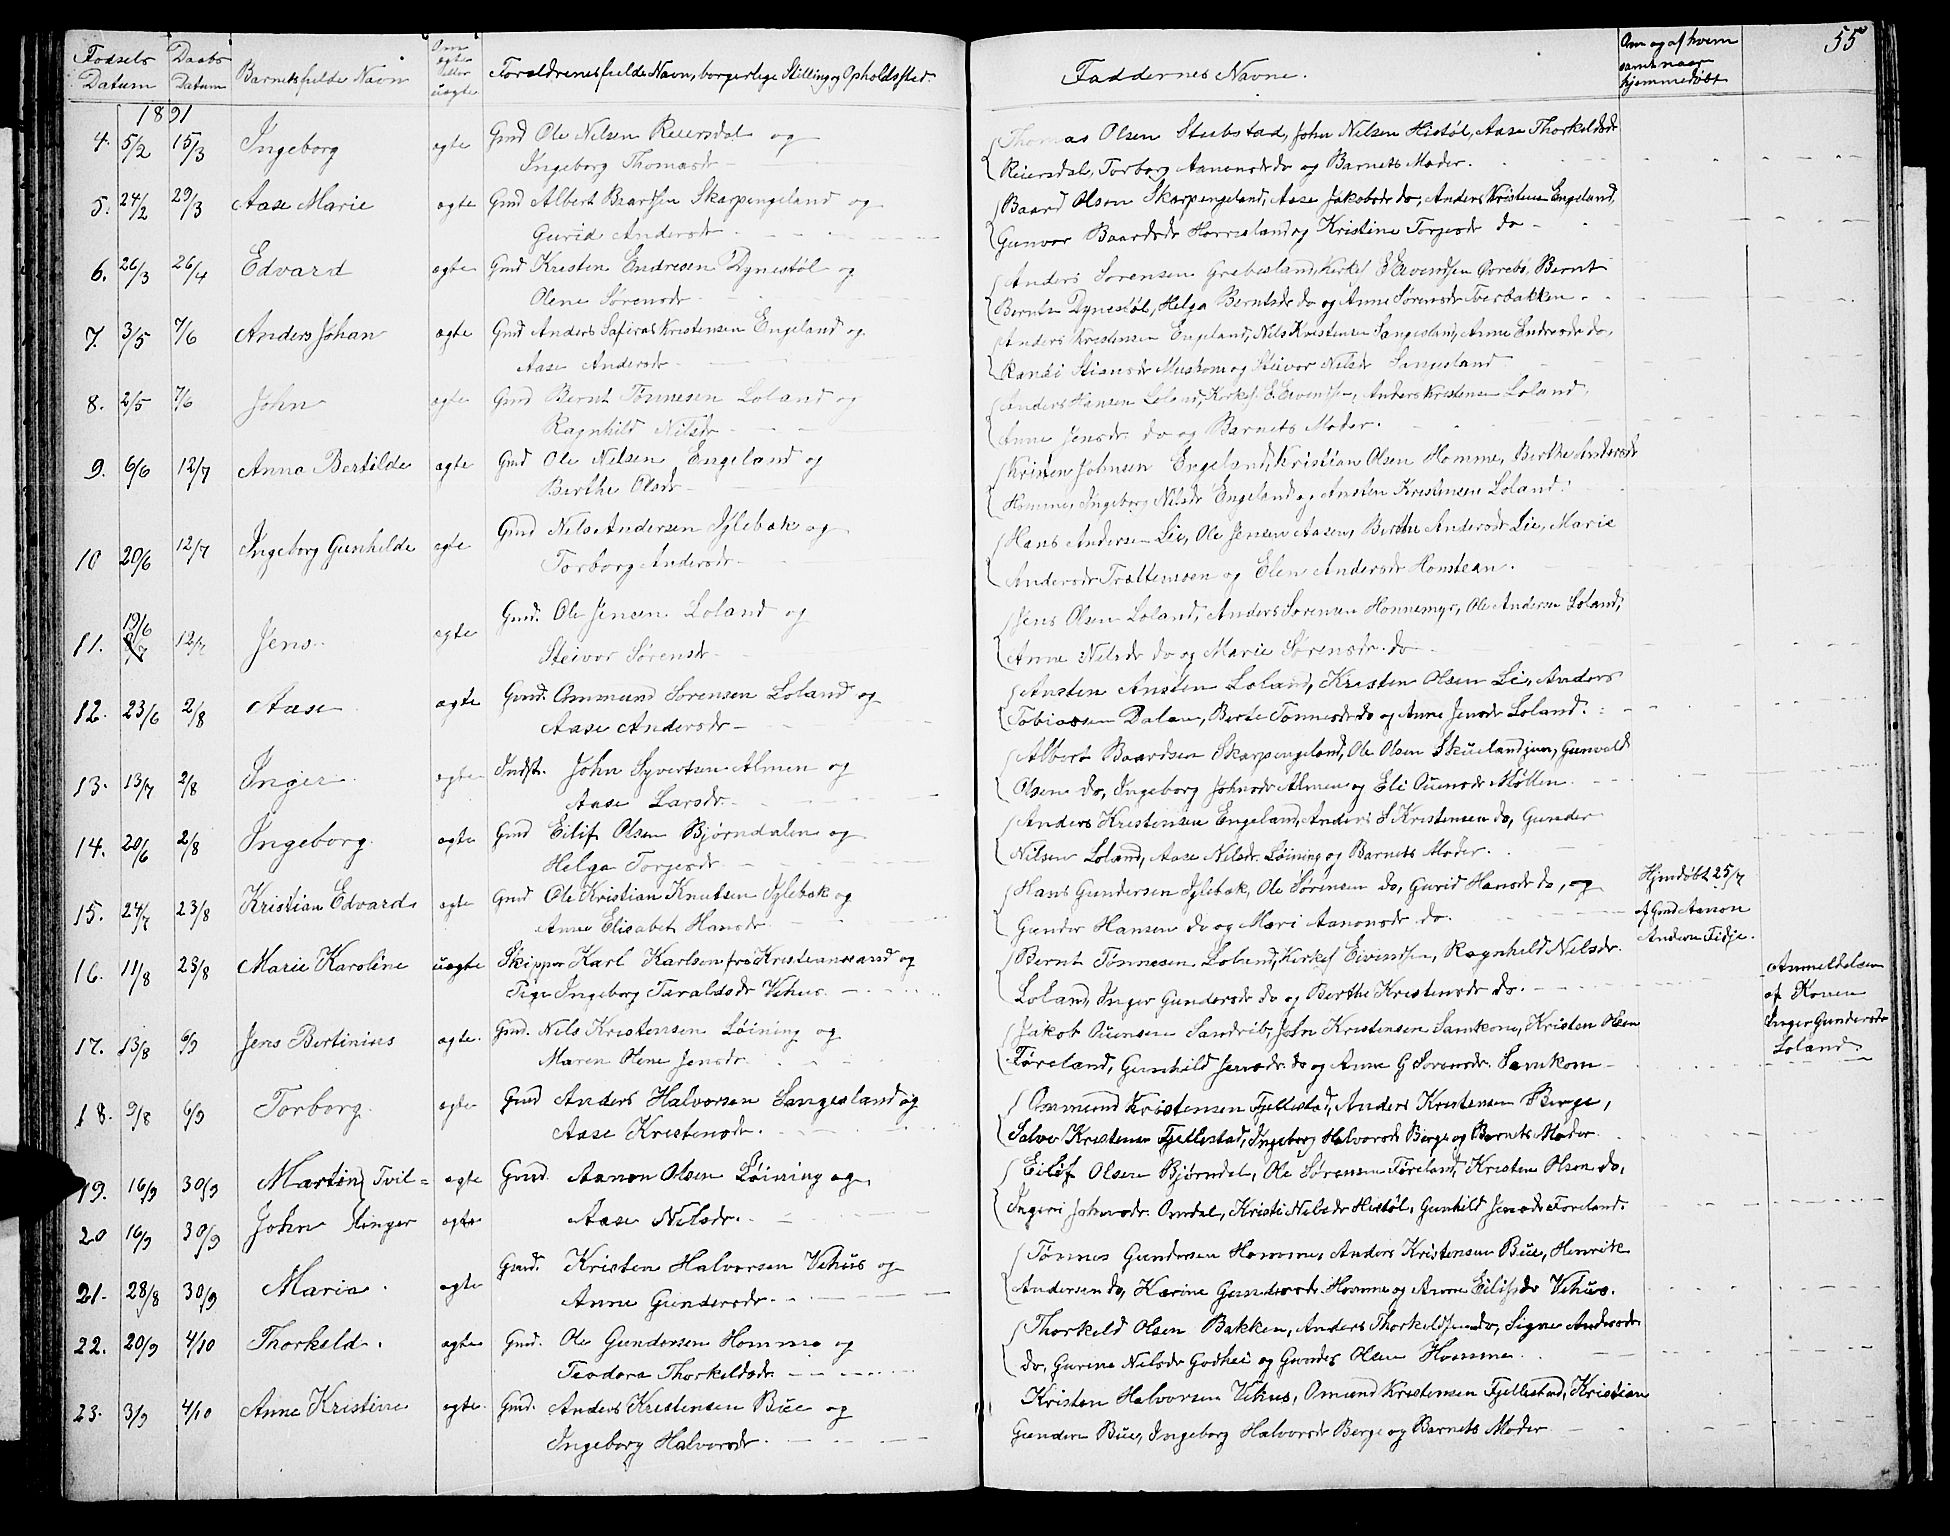 55
Fødsels Datum
Daabs Datum
Barnets fulde Navn
Om ægte eller uægte
Forældrenes fulde Navn, borgerlige Stilling og Opholdssted.
Faddernes Navne.
Om og af hvem samt naar hjemmedøbt
1891
4. 5/2 15/3 Ingeborg ægte Gmd Ole Nilsen Reiersdal og
Ingeborg Thomasdr
Thomas Olsen Stubstad, John Nilsen Histøl, Aase Thorkeldsdr
Reiersdal, Torborg Aanensdr do og Barnets Moder.
5. 24/2 29/3 Aase Marie ægte Gmd Albert Baardsen Skarpengeland og
Gurid Andersdr
Baard Olsen Skarpengeland, Aase Jakobsdr do, Anders Kristensen Engeland,
Gunvor Baardsdr Hørresland og Kristine Torgesdr do
6. 26/3 26/4 Edvard ægte Gmd Kresten Endresen Dynestøl og
Olene Sørensdr
Anders Sørensen Grebesland, Kirkes. E Eivendsen, Bernt
Berntsen Dynestøl, Helga Berntsdr do og Anne Sørensdr Tverbakken.
7. 3/5 7/6 Anders Johan ægte Gmd Anders Safiras Kristensen Engeland og
Aase Andersdr
Anders Kristensen Engeland, Nils Kristensen Sangesland, Anne Endresdr do,
Randi Stiansdr og Steivor Nilsdr Sangesland
8. 2/5 7/6 John ægte Gmd Bernt Tønnesen Loland og
Ragnhild Nilsdr
Anders Hansen Loland, Kirkes. E. Eivendsen, Anders Kristensen Loland,
Anne Jensdr do og Barnets Moder.
9. 6/6 12/7 Anna Bertilde ægte Gmd Ole Nilsen Engeland og
Berthe Olsdr
Kristen Johnsen Engeland, Kristian Olsen Homme, Berthe Andersdr
Homme, Ingeborg Nilsdr Engeland og Ansten Kristensen Loland.
10 20/6 12/7 Ingeborg Gunhilde ægte Gmd Nils Andersen Iglebæk og
Torborg Andersdr
Hans Andersen Lie, Ole Jensen Aasen, Berthe Andersdr Lie, Marie
Andersdr Trættemoen og Elen Andersdr Honstean.
11. 19/6 12/7 Jens. ægte Gmd. Ole Jensen Loland og
Steivor Sørensdr
Jens Olsen Loland, Anders Sørensen Honnemyr, Ole Andersen Loland,
Anne Nilsdr do og Marie Sørensdr. do
12. 23/6 2/8 Aase ægte Gmd. Ommund Sørensen Loland og
Aase Andersdr
Ansten Ansten Loland, Kristen Olsen Lie, Anders
Tobiassen Dalen, Berte Tønnesdr do og Anne Jensdr Loland.
13. 13/7 2/8 Inger ægte Indstr. John Syvertsen Almen og
Aase Larsdr
Albert Baardsen Skarpengeland, Ole Olsen Skueland jun, Gunvald
Olsen do, Ingeborg Johnsdr Almen og Eli Ouensdr Møllen
14. 20/6 2/8 Ingeborg ægte Gmd Eilif Olsen Bjørndalen og
Helga Torgesdr
Anders Kristensen Engeland, Anders S Kristensen do, Gunder
Nilsen Loland, Aase Nilsdr. Løining og Barnets Moder.
15. 24/7 23/8 Kristian Edvard ægte Gmd Ole Kristian Knutsen Iglebæk og
Anne Elisabet Hansdr.
Hans Gundersen Iglebæk, Ole Sørensen do, Gurid Hansdr do, og
Gunder Hansen do og Mari Aanonsdr do.
Hjmdøbt 25/7
af Gmd Aanon
Anders Fidje.
16. 11/8 23/8 Marie Karoline uægte Skipper Karl Karlsen fra Kristiansand og
Pige Ingeborg Taraldsdr Vehus
Bernt Tønnesen Loland, Kirkes Eivindsen, Ragnhild Nilsdr.
Loland, Inger Gundersdr do og Berthe Kristensdr do.
Anmeldelsen
af Konen
Inger Gundersdr
Loland.
17. 13/8 6/9 Jens Bertinius ægte. Gmd. Nils Kristensen Løining og
Maren Olene Jensdr
Jakob Ouensen Sandrib, John Kristensen Samkom, Kristen Olsen
Føreland, Gunhild Jensdr. do og Anne G Sørensdr. Samkom
18. 9/8 6/9 Torborg ægte Gmd Anders Halvorsen Sangesland og
Aase Kristensdr.
Ommund Kristensen Fjellestad, Anders Kristensen Berge,
Salve Kristensen Fjellestad, Ingeborg Halvorsdr Berge og Barnets Moder
19. 16/9 30/9 Martin } Tvil= ægte Gmd. Aanon Olsen Løining og
Eilif Olsen Bjørndal, Ole Sørensen Føreland, Kristen Olsen do,
20 16/9 30/9 John linger ægte Aase Nilsdr.
Ingeri Johnsdr. Omdal, Kristi Nilsdr Histøl, Gunhild Jensdr Føreland.
21. 28/8 30/9 Maria. ægte Gmd. Kristen Halvorsen Vehus og
Anne Gundersdr.
Tønnes Gundersen Homme, Anders Kristensen Bue, Henrik
Andersen do, Karine Gundersdr. Homme og Anne Eilifsdr Vehus.
22. 20/9 4/10 Thorkeld. ægte Gmd. Ole Gundersen Homme og
Teodora Thorkeldsdr.
Thorkeld Olsen Bakken, Anders Thorkeldsen do, Signe Andersdr
do, Gurine Nilsdr Godhei og Gunder Olsen Homme.
23. 3/9 4/10 Anne Kristine ægte. Gmd. Anders Kristensen Bue og
Ingeborg Halvorsdr.
Kristen Halvorsen Vehus, Omund Kristensen Fjellestad, Kristian
Gundersen Bue, Ingeborg Halvorsdr Berge og Barnets Moder